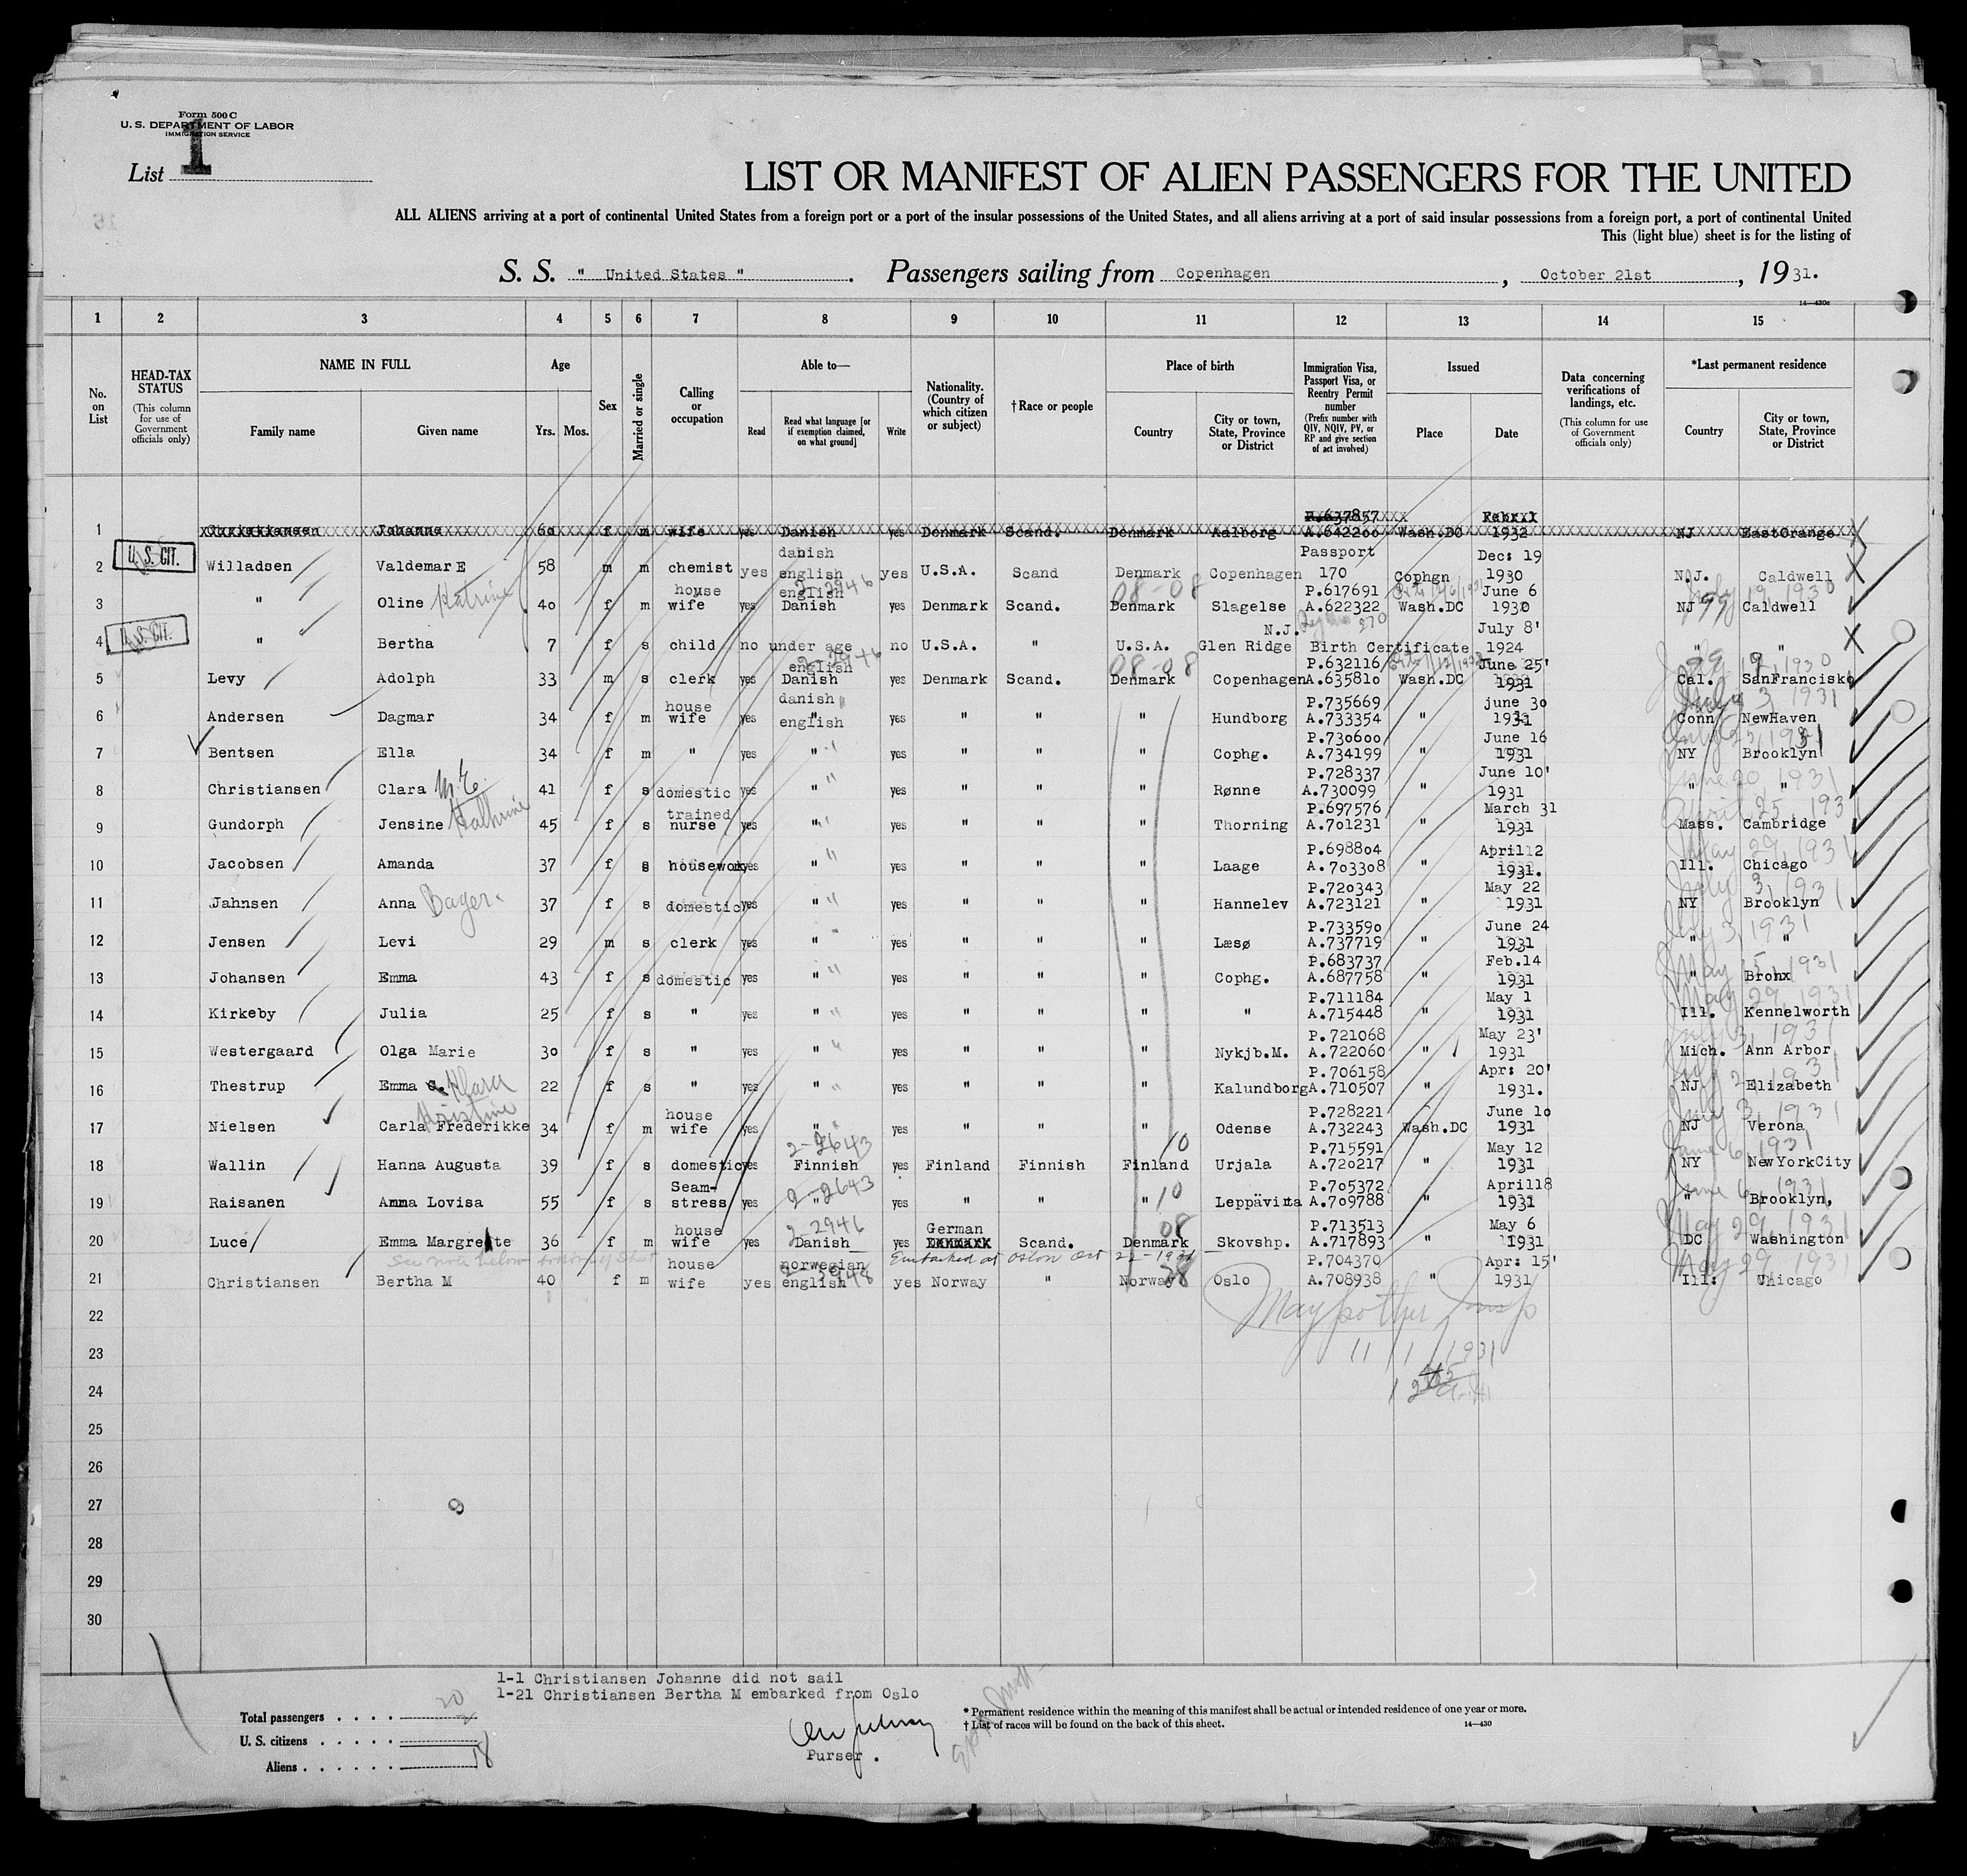 Form 500 C
U. S. DEPARTMENT OF LABOR
IMMIGRATION SERVICE
List 1
LIST OR MANIFEST OF ALIEN PASSENGERS FOR THE UNITED
ALL ALIENS arriving at a port of continental United States from a foreign port or a port of the insular possessions of the United States, and all aliens arriving at a port of said insular possessions from a foreign port, a port of continental United
This (light blue) sheet is for the listing of
S. S. " United States ". Passengers sailing from Copenhagen, October 21st, 1931.
14—430c
1 2 3 4 5 6 7 8 9 10 11 12 13 14 15
No. on List
HEAD-TAX STATUS (This column for use of Government officials only)
NAME IN FULL Family name Given name
Age Yrs. Mos.
Sex
Married or single
Calling or occupation
Able to— Read Read what language [or if exemption claimed, on what ground] Write
Nationality. (Country of which citizen or subject)
†Race or people
Place of birth Country City or town, State, Province or District
Immigration Visa, Passport Visa, or Reentry Permit number (Prefix number with QIV, NQIV, PV, or RP and give section of act involved)
Issued Place Date
Data concerning verifications of landings, etc. (This column for use of Government officials only)
*Last permanent residence Country City or town, State, Province or District
P.637857 Febr.1
1 Christiansen Johanne 60 f m wife yes Danish yes Denmark Scand. Denmark Aalborg A.642200 Wash.DC 1932 NJ EastOrange
U. S. CIT. danish Passport Dec: 19
2 Willadsen Valdemar E 58 m m chemist yes english yes U.S.A. Scand Denmark Copenhagen 170 Cophgn 1930 N.J. Caldwell
house english 2-2946 08-08 P.617691 June 6
3 " Oline Katrine 40 f m wife yes Danish yes Denmark Scand. Denmark Slagelse A.622322 Wash.DC 1930 NJ Caldwell
U. S. CIT. N.J. 270 July 8'
4 " Bertha 7 f s child no under age no U.S.A. " U.S.A. Glen Ridge Birth Certificate 1924 " "
english 2-2946 08-08 P.632116 June 25'
5 Levy Adolph 33 m s clerk yes Danish yes Denmark Scand. Denmark Copenhagen A.635810 Wash.DC 1931 Cal. SanFrancisko
house danish P.735669 june 30 July 3, 1931
6 Andersen Dagmar 34 f m wife yes english yes " " " Hundborg A.733354 " 1931 Conn NewHaven
P.730600 June 16
7 Bentsen Ella 34 f m " yes " yes " " " Cophg. A.734199 " 1931 NY Brooklyn
P.728337 June 10' June 20, 1931
8 Christiansen Clara M.E. 41 f s domestic yes " yes " " " Rønne A.730099 " 1931 " "
trained P.697576 March 31 April 25, 1931
9 Gundorph Jensine Kathrine 45 f s nurse yes " yes " " " Thorning A.701231 " 1931 Mass. Cambridge
P.698804 April12 May 29, 1931
10 Jacobsen Amanda 37 f s housewok yes " yes " " " Laage A.703308 " 1931. Ill. Chicago
P.720343 May 22 July 3, 1931
11 Jahnsen Anna Bager. 37 f s domestic yes " yes " " " Hannelev A.723121 " 1931 NY Brooklyn
P.733590 June 24 July 3, 1931
12 Jensen Levi 29 m s clerk yes " yes " " " Læsø A.737719 " 1931 " "
P.683737 Feb.14
13 Johansen Emma 43 f s domestic yes " yes " " " Cophg. A.687758 " 1931 " Bronx
P.711184 May 1 May 29, 1931
14 Kirkeby Julia 25 f s " yes " yes " " " " A.715448 " 1931 Ill. Kennelworth
P.721068 May 23' July 3, 1931
15 Westergaard Olga Marie 30 f s " yes " yes " " " Nykjb.M. A.722060 " 1931 Mich. Ann Arbor
P.706158 Apr: 20'
16 Thestrup Emma Klara 22 f s " yes " yes " " " Kalundborg A.710507 " 1931. NJ Elizabeth
Kristine house P.728221 June 10 July 3, 1931
17 Nielsen Carla Frederikke 34 f m wife yes " yes " " " Odense A.732243 Wash.DC 1931 NJ Verona
2-2643 10 P.715591 May 12 June 6, 1931
18 Wallin Hanna Augusta 39 f s domestic yes Finnish yes Finland Finnish Finland Urjala A.720217 " 1931 NY NewYorkCity
Seam- 2-2643 10 P.705372 April18 June 6, 1931
19 Raisanen Amma Lovisa 55 f s stress yes " yes " " " Leppävirta A.709788 " 1931 " Brooklyn,
house 2-2946 German 08 P.713513 May 6 May 29, 1931
20 Luce Emma Margrete 36 f m wife yes Danish yes Scand. Denmark Skovshp. A.717893 " 1931 DC Washington
See note below bottom of Sheet house norwegian Embarked at Oslo Oct 22-1931 P.704370 Apr: 15' May 29, 1931
21 Christiansen Bertha M 40 f m wife yes english yes Norway " Norway Oslo A.708938 " 1931 Ill: Chicago
22
23 11/1/1931
24
25
26
27
28
29
30
1-1 Christiansen Johanne did not sail
1-21 Christiansen Bertha M embarked from Oslo
Total passengers . . . . 20
U. S. citizens . . . . . 2
Aliens . . . . . . 18
Purser .
* Permanent residence within the meaning of this manifest shall be actual or intended residence of one year or more.
† List of races will be found on the back of this sheet. 14—430